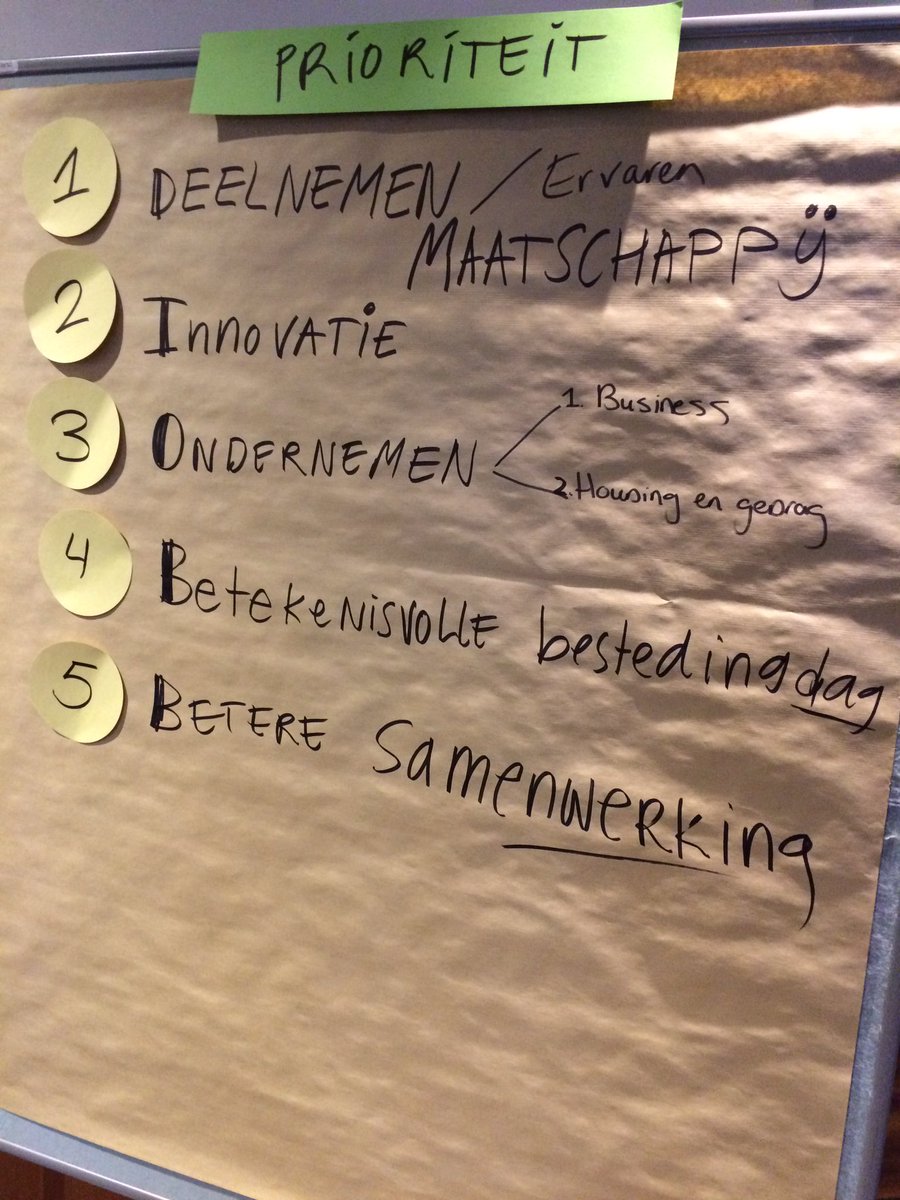 PRIORITEIT
1 DEELNEMEN / Ervaren
MAATSCHAPPÿ
2 INNOVATIE
1. Business
3 ONDERNEMEN
2. Housing en gedrag
4 BETEKENISVOLLE bestedingdag
5 BETERE Samenwerking